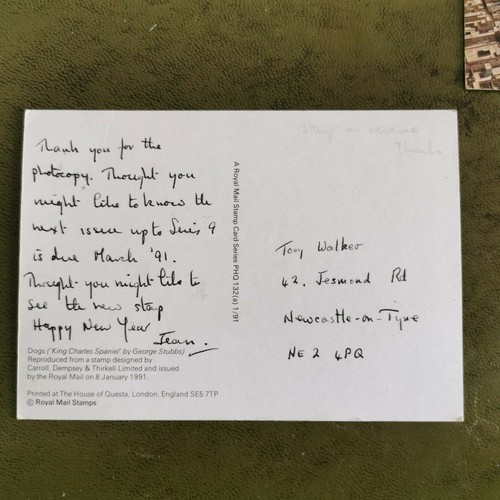 Thank you for the
photocopy. Thought you
might like to know the
next issue up to Series 9
is due March '91.
Thought you might like to
see the new stamp
Happy New Year
Jean.
Dogs ('King Charles Spaniel' by George Stubbs)
Reproduced from a stamp designed by
Carroll, Dempsey & Thirkell Limited and issued
by the Royal Mail on 8 January 1991.
Printed at The House of Questa, London, England SE5 7TP
© Royal Mail Stamps
A Royal Mail Stamp Card Series PHQ 132(a) 1/91
Stamp on reverse
Thanks
Tony Walker
42, Jesmond Rd
Newcastle-on-Tyne
NE2 4PQ